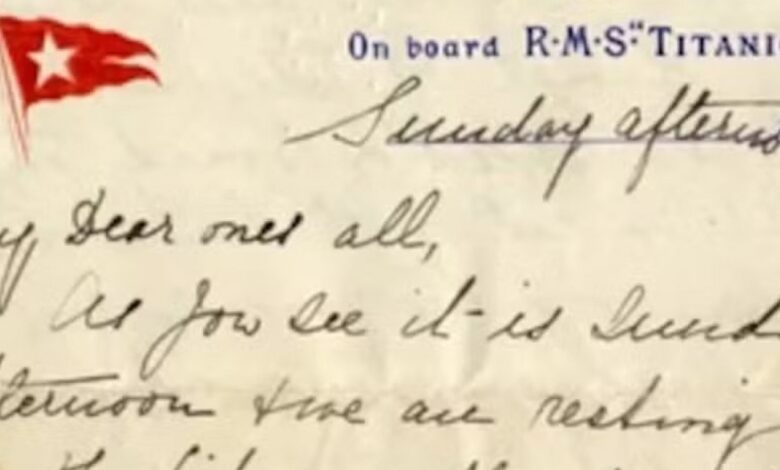 On board R·M·S·"TITANI
Sunday afterno
y Dear ones all,
As you see it is Sund
ternoon & we are resting